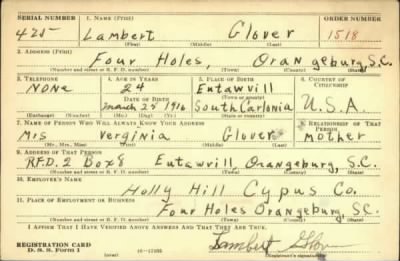 SERIAL NUMBER 1. NAME (Print) ORDER NUMBER
425 Lambert Glover 1518
(First) (Middle) (Last)
2. ADDRESS (Print)
Four Holes, Orangeburg S.C.
(Number and street or R. F. D. number) (Town) (County) (State)
3. TELEPHONE 4. AGE IN YEARS 5. PLACE OF BIRTH 6. COUNTRY OF CITIZENSHIP
None 24 Eutawvill
DATE OF BIRTH
March 25 1916 South Carlonia U.S.A.
(Exchange) (Number) (Mo.) (Day) (Yr.) (State or country)
7. NAME OF PERSON WHO WILL ALWAYS KNOW YOUR ADDRESS 8. RELATIONSHIP OF THAT PERSON
Mrs Verginia Glover Mother
(Mr., Mrs., Miss) (First) (Middle) (Last)
9. ADDRESS OF THAT PERSON
R.F.D. 2 Box 8 Eutawvill, Orangeburg, S.C.
(Number and street or R. F. D. number) (Town) (County) (State)
10. EMPLOYER'S NAME
Holly Hill Cypus Co.
11. PLACE OF EMPLOYMENT OR BUSINESS
Four Holes Orangeburg, S.C.
(Number and street or R. F. D. number) (Town) (County) (State)
I AFFIRM THAT I HAVE VERIFIED ABOVE ANSWERS AND THAT THEY ARE TRUE.
REGISTRATION CARD
D. S. S. Form 1 (over) Lambert Glover
(Registrant's signature)